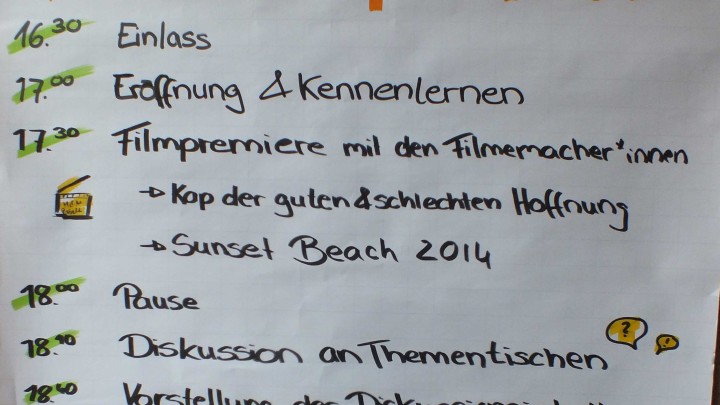 16.30 Einlass
17.00 Eröffnung & Kennenlernen
17.30 Filmpremiere mit den Filmemacher*innen
→ Kap der guten & schlechten Hoffnung
→ Sunset Beach 2014
18.00 Pause
18.10 Diskussion an Thementischen
? !
18.40 Vorstellung der